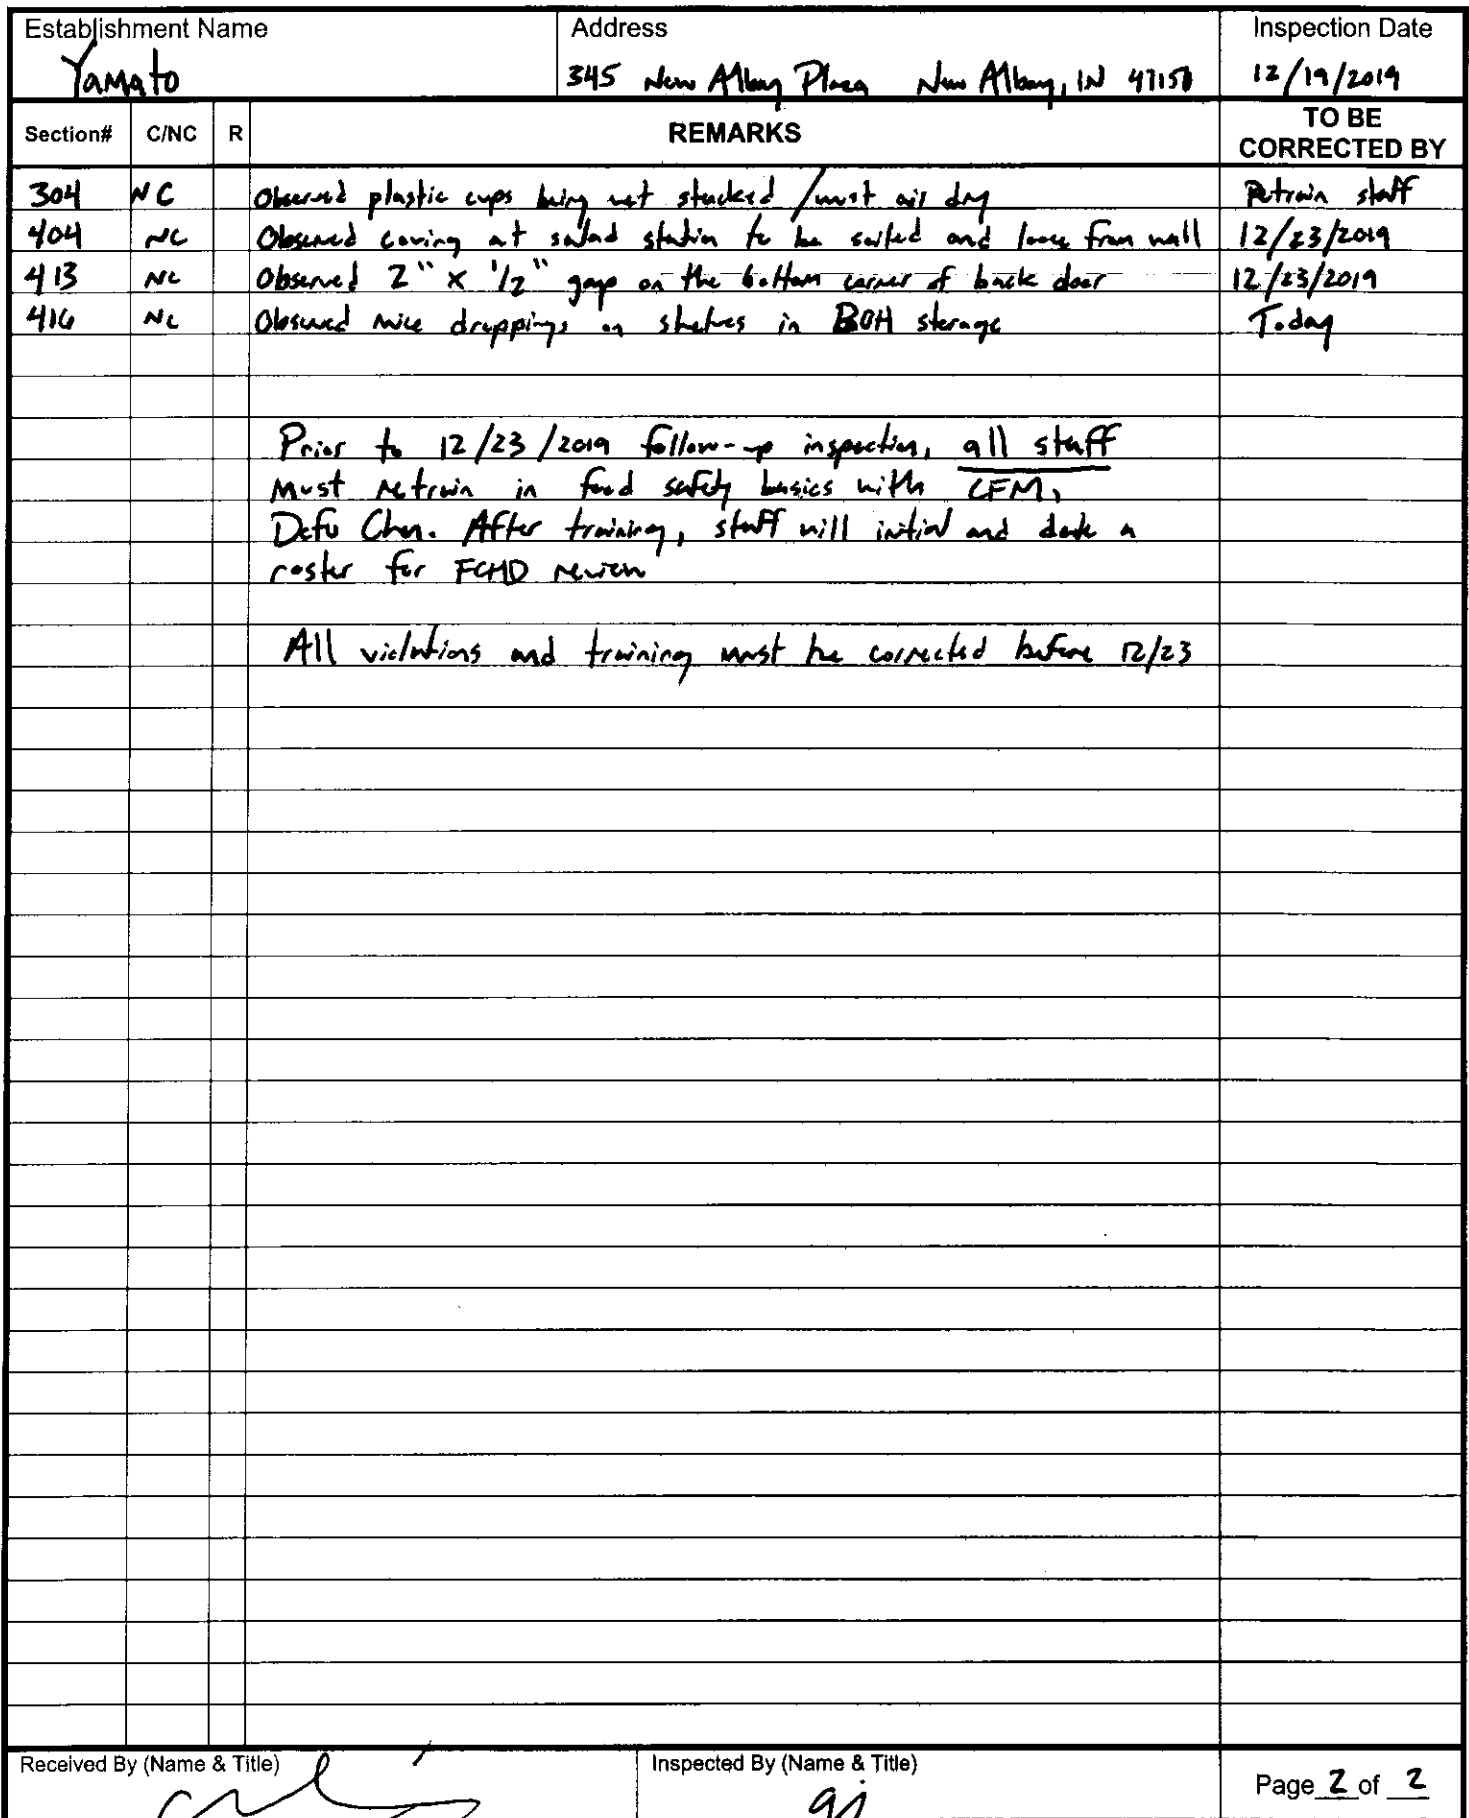 Establishment Name Address Inspection Date
Yamato 345 New Albany Plaza New Albany, IN 47150 12/19/2019
Section# C/NC R REMARKS TO BE CORRECTED BY
304 NC Observed plastic cups being wet stacked / must air dry Retrain staff
404 NC Observed coving at salad station to be soiled and loose from wall 12/23/2019
413 NC Observed 2" x 1/2" gap on the bottom corner of back door 12/23/2019
416 NC Observed mice droppings on shelves in BOH storage Today
Prior to 12/23/2019 follow-up inspection, all staff
Must retrain in food safety basics with CFM,
Defu Chen. After training, staff will initial and date a
roster for FCHD review
All violations and training must be corrected before 12/23
Received By (Name & Title) Inspected By (Name & Title) Page 2 of 2